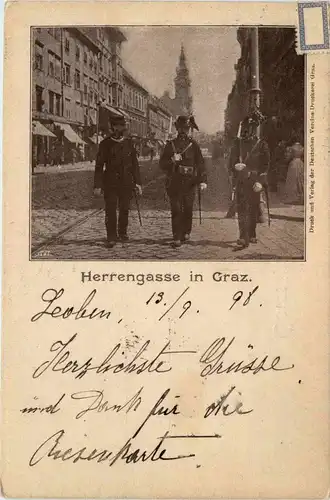 Herrengasse in Graz.
Druck und Verlag der Deutschen Vereins-Druckerei Graz.
Leoben, 13./9. 98.
Herzlichste Grüsse
und Dank für die
Riesenkarte